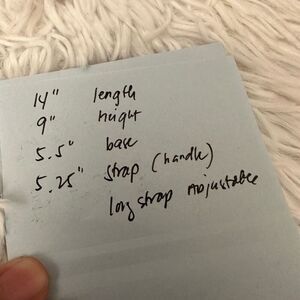 14" length
9" height
5.5" base
5.25" strap (handle)
long strap Adjustable